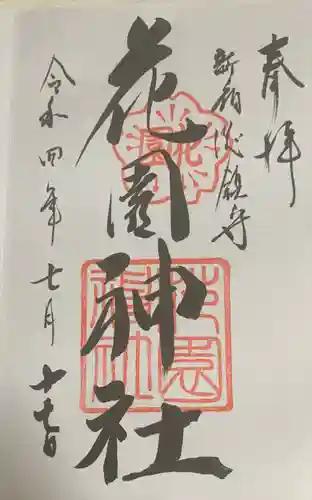 奉拝
新宿総鎮守
花園神社
令和四年七月十六日